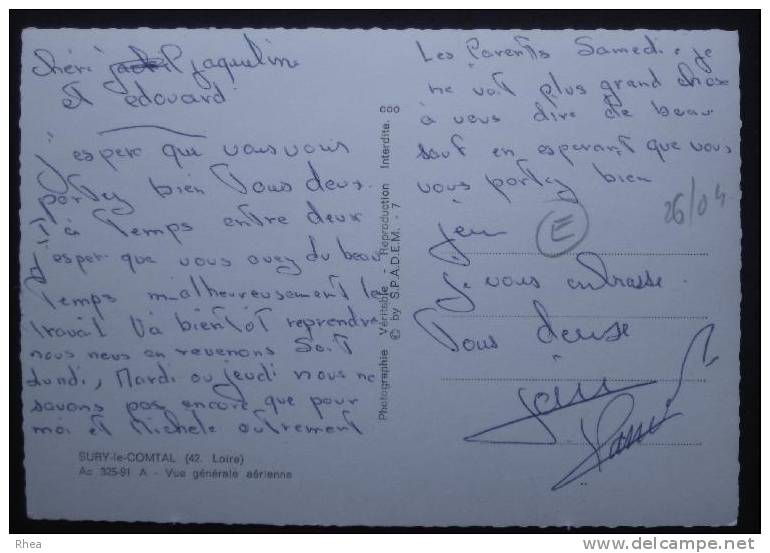 chéri Jaqueline
et édouard
j'espere que vous vous
portez bien tous deux.
temps entre deux
j'espere que vous avez du beau
temps malheureusement le
travail va bientot reprendre
nous nous en revenons soit
Lundi, Mardi ou jeudi nous ne
savons pas encore que pour
moi et Michele autrement
SURY-le-COMTAL (42. Loire)
Ac 325-91 A - Vue générale aérienne
Photographie Véritable - Reproduction Interdite.
© by S.P.A.D.E.M. - 7
Les Parents Samedi. je
ne voit plus grand chose
à vous dire de beau
sauf en esperant que vous
vous portez bien
26/04
E
je vous embrasse
Tous deuse
Rhea
delcampe.net